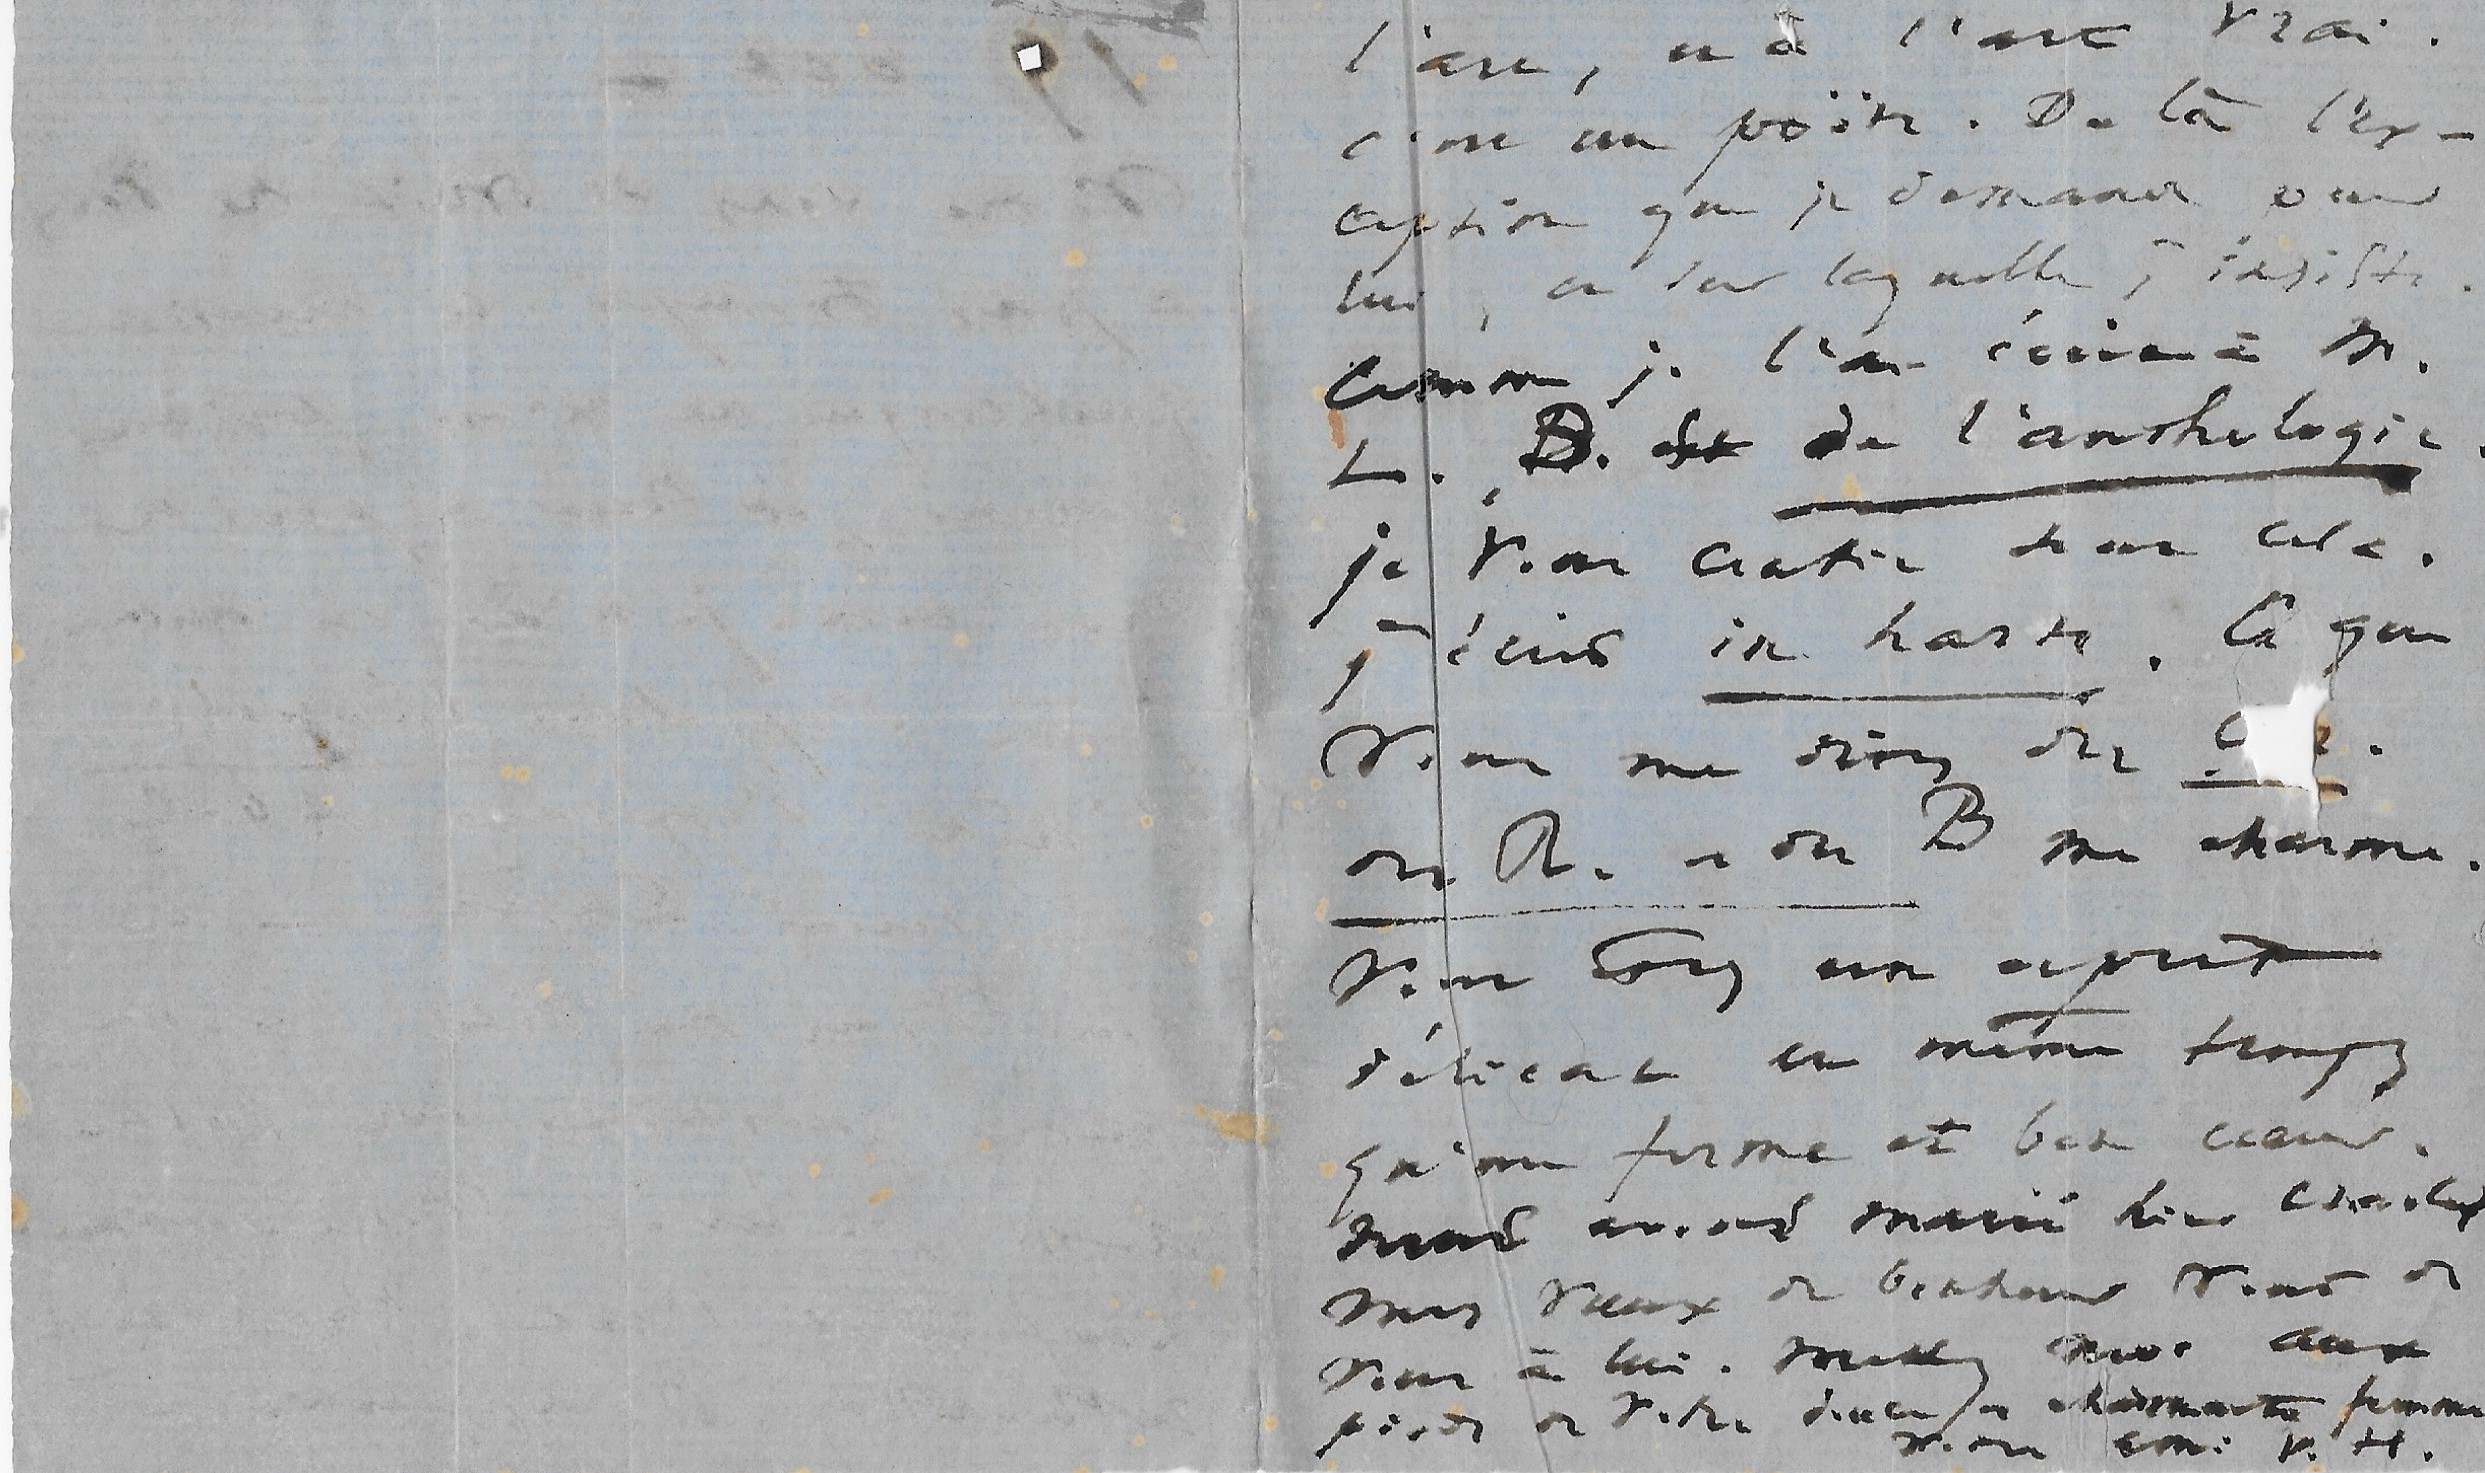 l'art, et à l'art vrai.
c'est un poëte. De là l'ex-
ception que je demande pour
lui, et sur laquelle j'insiste.
Comme je l'ai écrit à M.
L. D. de l'anthologie.
je vous cela.
j'écris in haste. Ce que
Vous me dites des
des R. et des B me charme.
Vous êtes un esprit
délicat en même temps
qu'un ferme et bon cœur.
nous avons marié hier Charles
mes vœux de bonheur vont de
vous à lui. mettez moi aux
pieds de votre douce et charmante femme
votre ami V. H.